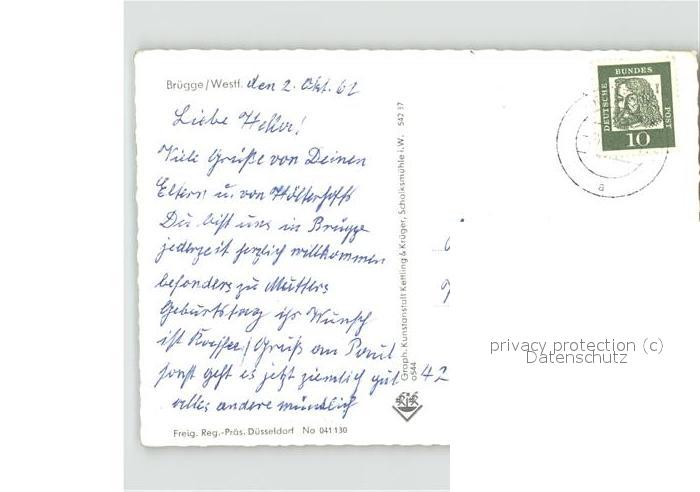 Brügge/Westf. den 2. Okt. 62
Liebe
Viele Grüße von Deinen
Eltern u. von Hölterhoffs
Du bist uns in Brügge
jederzeit herzlich willkommen
besonders zu Mutters
Geburtstag ihr Wunsch
ist Kaffee / Gruß an Paul
sonst geht es jetzt ziemlich gut
alles andere mündlich
Freig. Reg.-Präs. Düsseldorf No 041130
Graph. Kunstanstalt Kettling & Krüger, Schalksmühle i.W. 542 37
o544
DEUTSCHE
BUNDES
POST
10
a
42
privacy protection (c)
Datenschutz